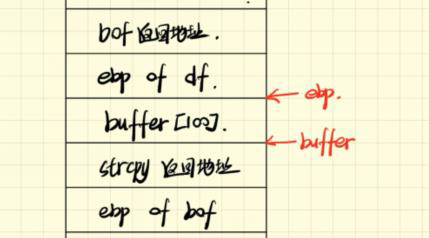 bof 返回地址.
ebp of df.
ebp.
buffer [100].
buffer
strcpy 返回地址
ebp of bof